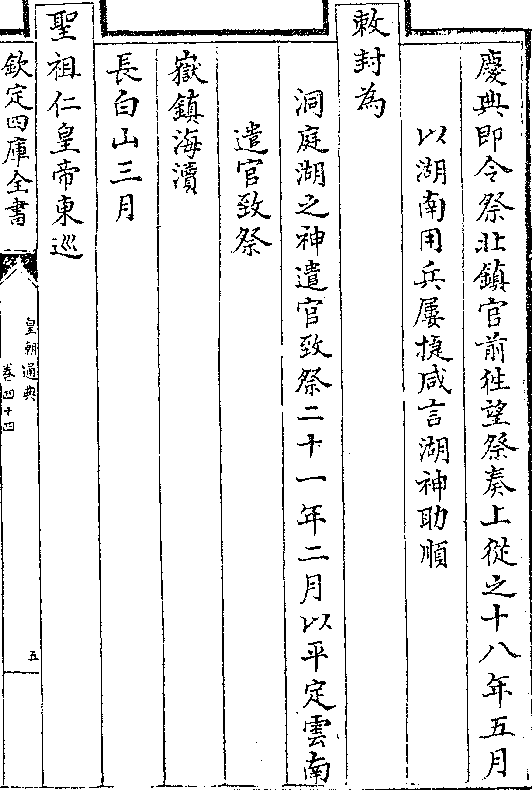 慶典即令祭北鎮官前往望祭奏上從之十八年五月
以湖南用兵屢捷咸言湖神助順
敕封為
洞庭湖之神遣官致祭二十一年二月以平定雲南
遣官致祭
嶽鎮海瀆
長白山三月
聖祖仁皇帝東巡
欽定四庫全書
皇朝通典
卷四十四
五